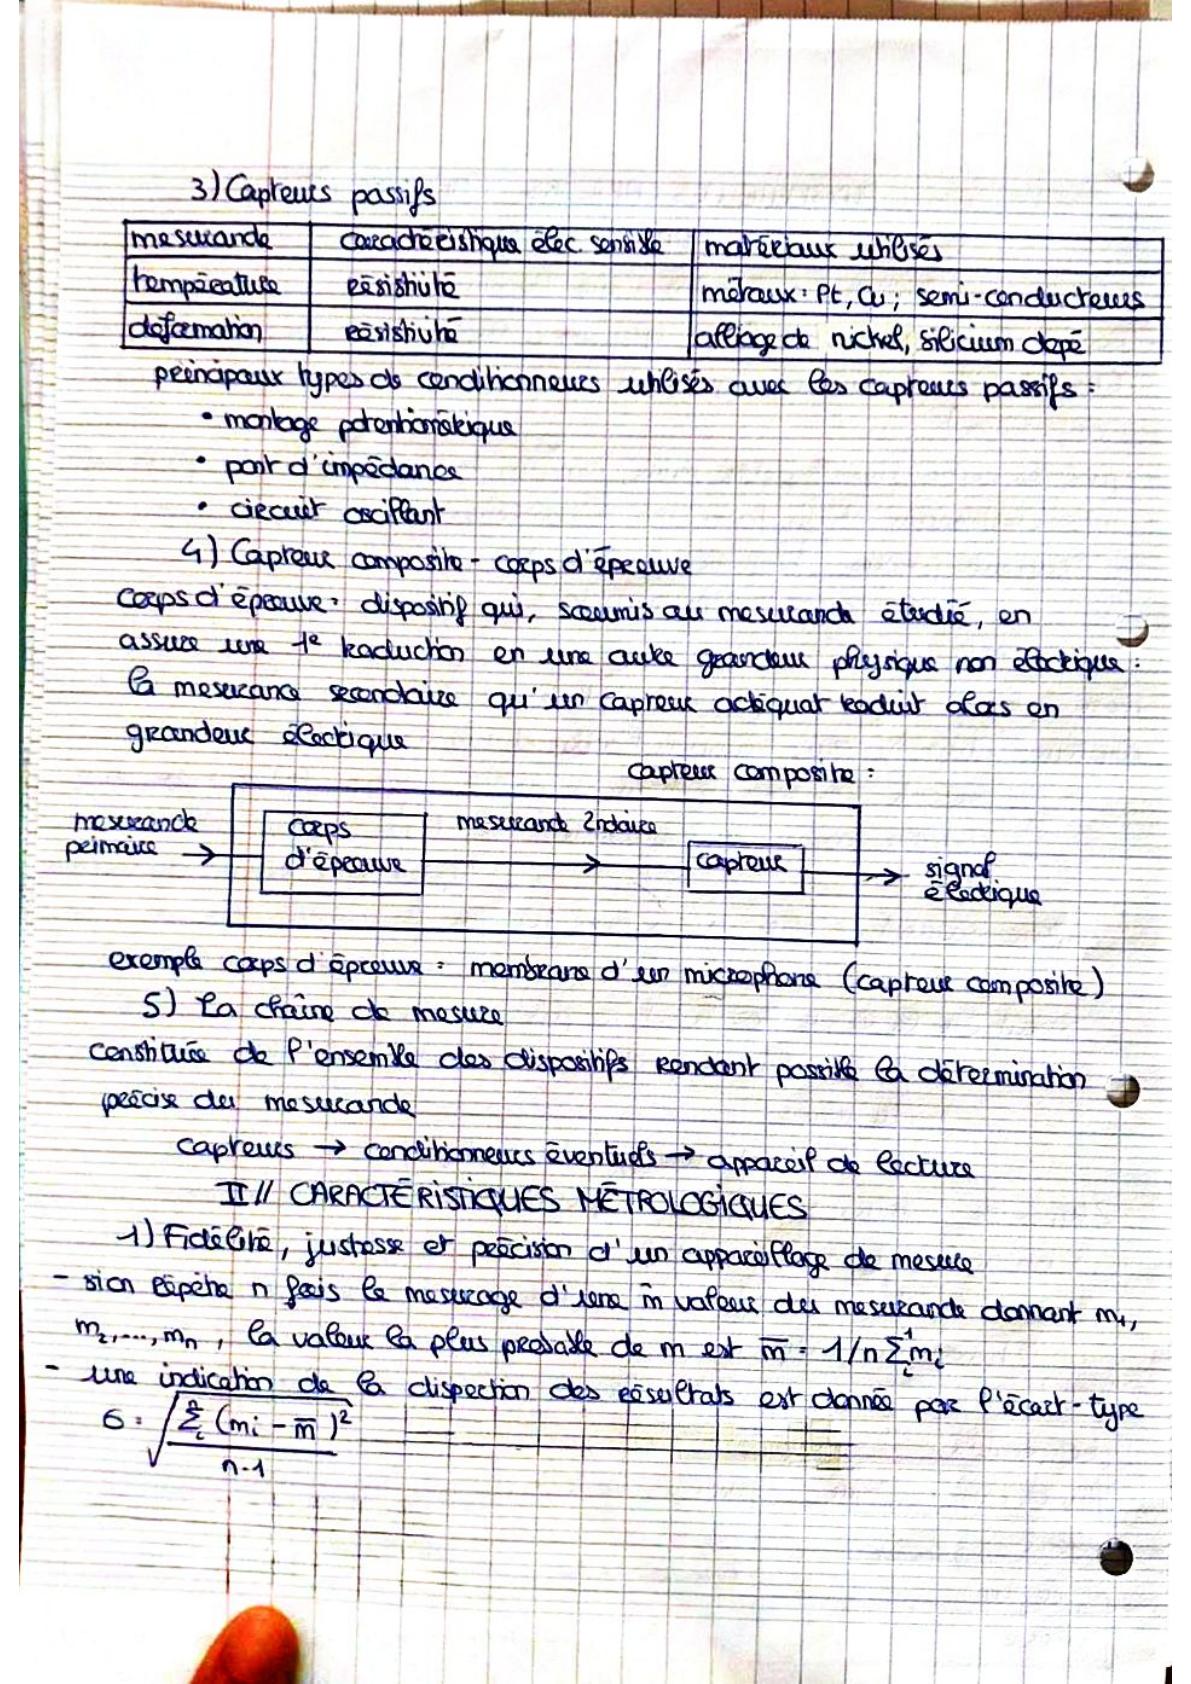 3) Capteurs passifs
mesurande | caractéristique élec. sensible | matériaux utilisés
température | résistivité | métaux : Pt, Cu ; semi-conducteurs
déformation | résistivité | alliage de nickel, silicium dopé
principaux types de conditionneurs utilisés avec les capteurs passifs :
• montage potentiométrique
• pont d'impédance
• circuit oscillant
4) Capteur composite - corps d'épreuve
corps d'épreuve : dispositif qui, soumis au mesurande étudié, en
assure une 1e traduction en une autre grandeur physique non électrique :
la mesurande secondaire qu'un capteur adéquat traduit alors en
grandeur électrique
capteur composite :
mesurande primaire → corps d'épreuve
mesurande 2ndaire → capteur
→ signal électrique
exemple corps d'épreuve : membrane d'un microphone (capteur composite)
5) La chaîne de mesure
constituée de l'ensemble des dispositifs rendant possible la détermination
précise du mesurande
capteurs → conditionneurs éventuels → appareil de lecture
II // CARACTÉRISTIQUES MÉTROLOGIQUES
1) Fidélité, justesse et précision d'un appareillage de mesure
- si on répète n fois le mesurage d'une m̄ valeur du mesurande donnant m₁,
m₂,..., mₙ, la valeur la plus probable de m est m̄ = 1/n Σ mᵢ
- une indication de la dispertion des résultats est donnée par l'écart-type
σ = √(Σ (mᵢ - m̄)² / n-1)